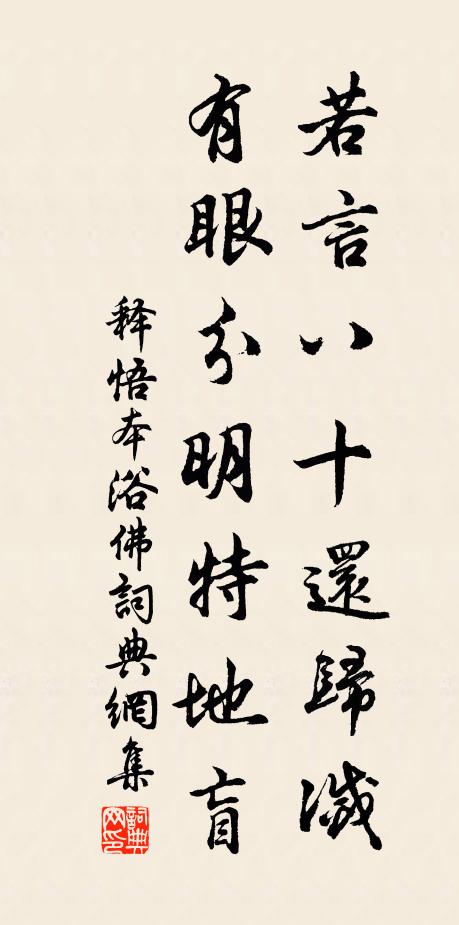 若言八十還歸滅
有眼分明特地盲
释悟本浴佛詞典網集
詞典网印